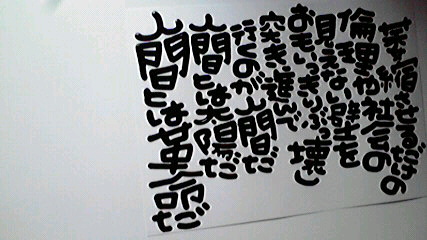 夢を宿せるだけの
倫理や社会の
見えない壁を
おもいっきりぶっ壊し
突き進んで
行くのが山間だ
山間とは太陽だ
山間とは革命だ